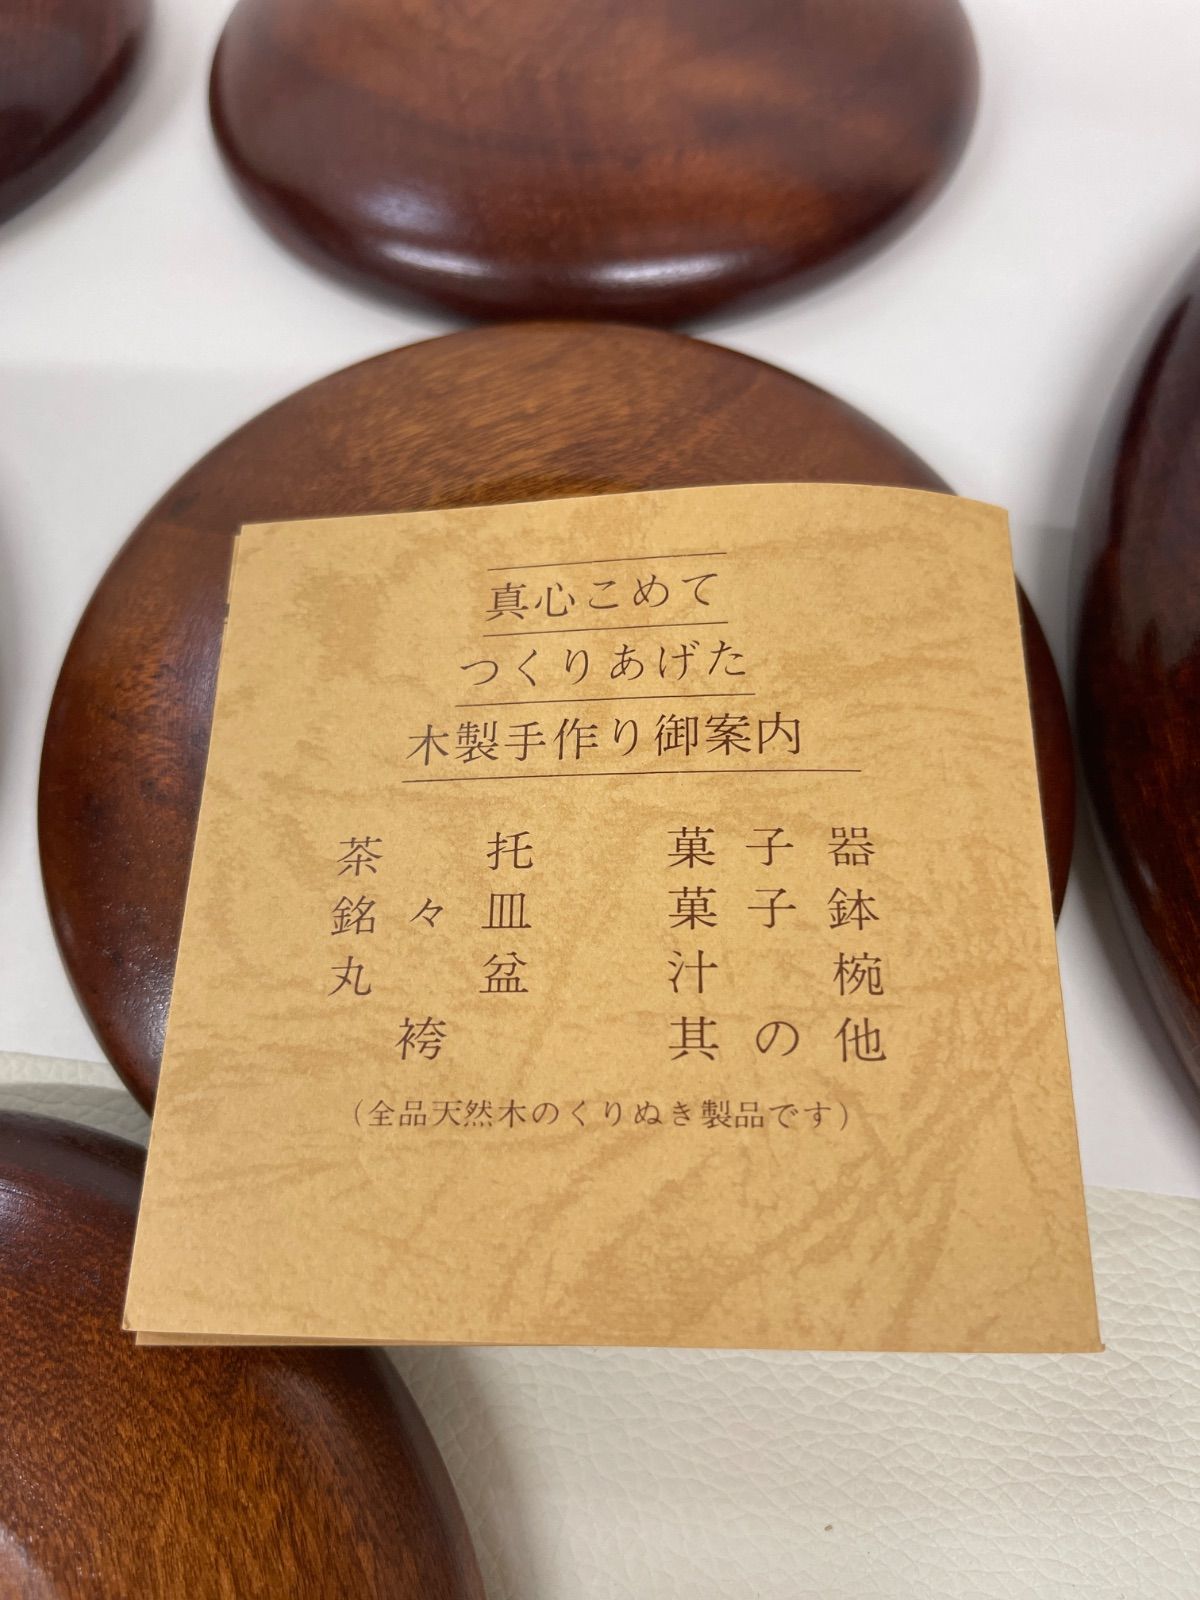 真心こめて
つくりあげた
木製手作り御案内
茶托 菓子器
銘々皿 菓子鉢
丸盆 汁椀
袴 其の他
(全品天然木のくりぬき製品です)